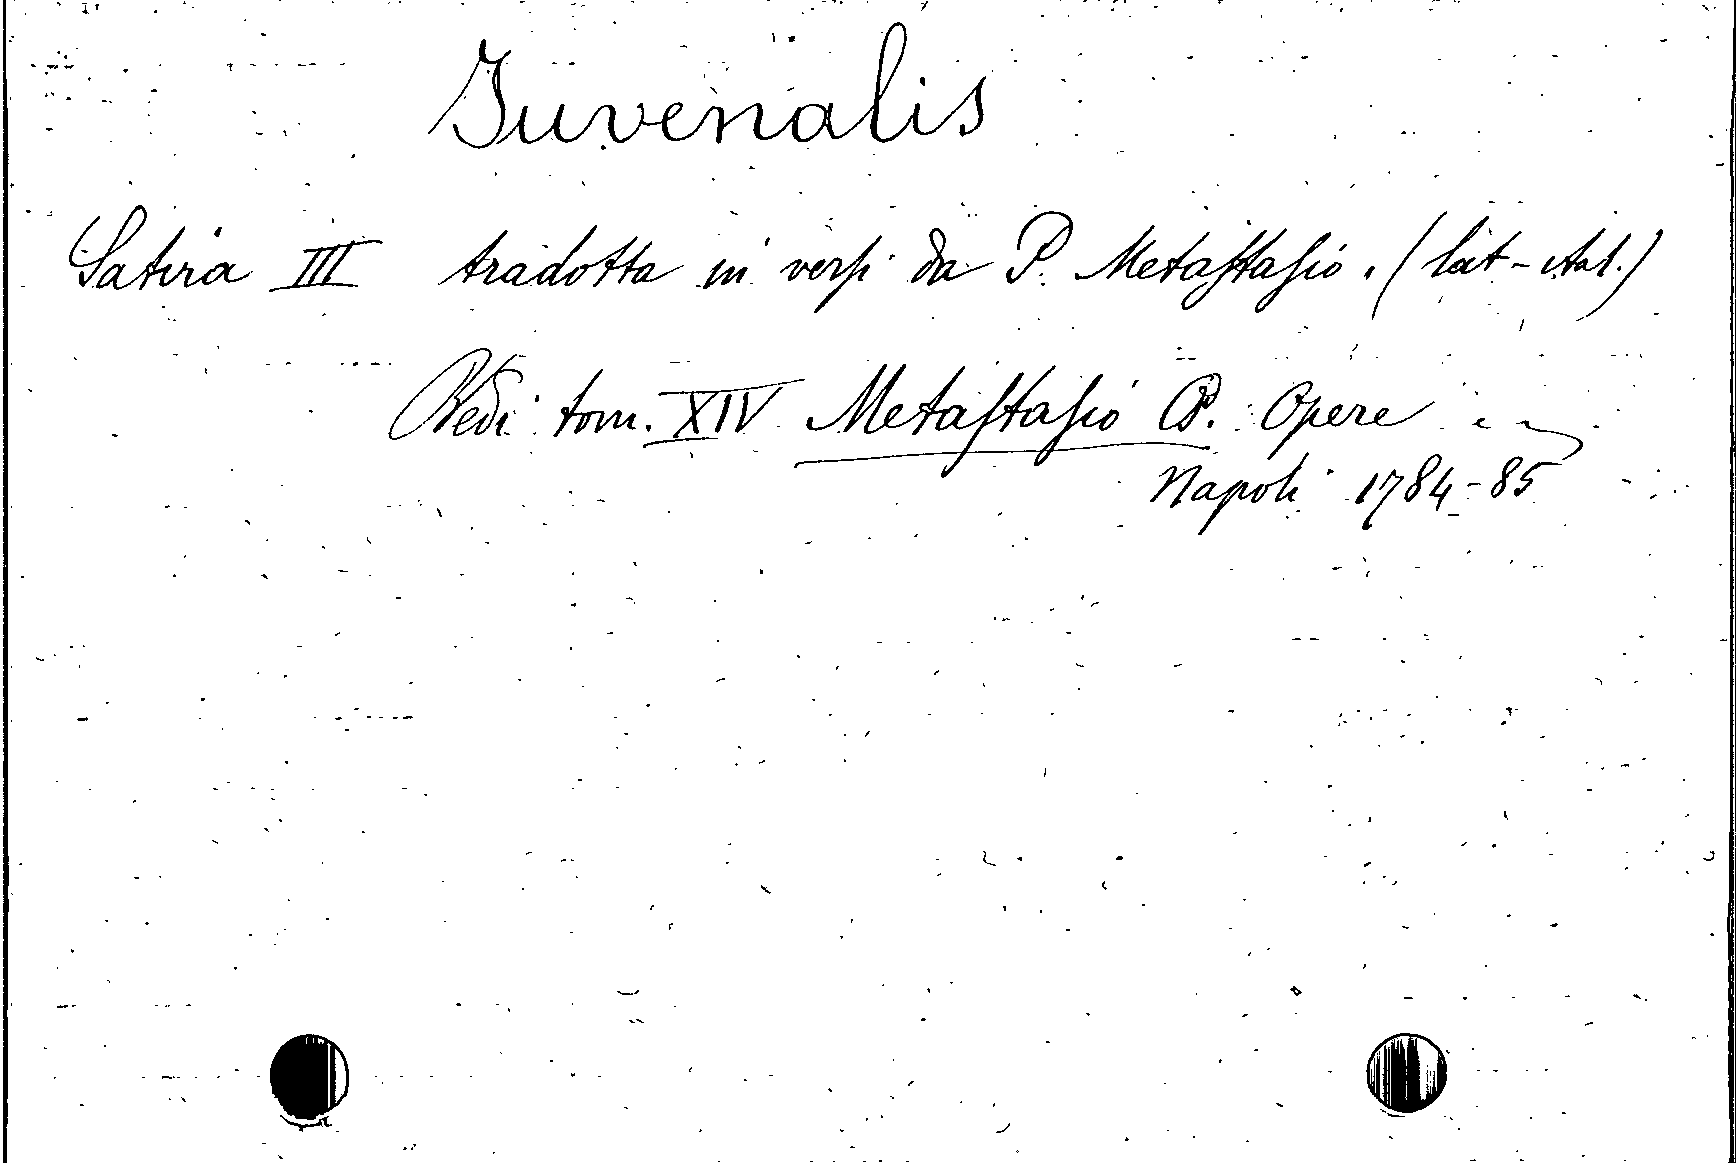 Juvenalis
Satira III tradotta in versi da P. Metastasio. (lat-ital.)
Vedi tom. XIV Metastasio P. Opere
Napoli 1784-85